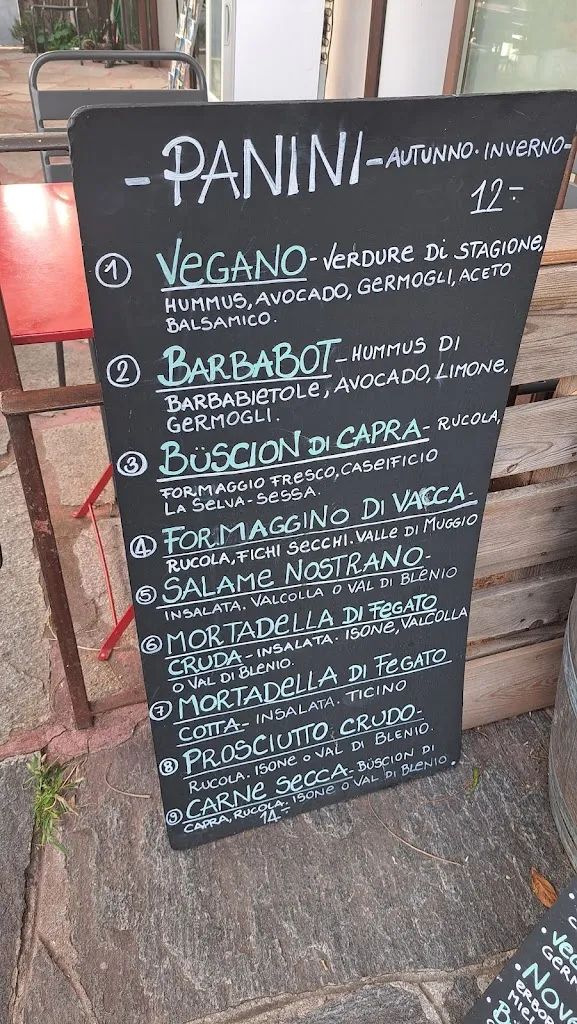 - PANINI - AUTUNNO · INVERNO -
12.-
① VEGANO - VERDURE DI STAGIONE,
HUMMUS, AVOCADO, GERMOGLI, ACETO
BALSAMICO.
② BARBABOT - HUMMUS DI
BARBABIETOLE, AVOCADO, LIMONE,
GERMOGLI.
③ BÜSCION DI CAPRA - RUCOLA,
FORMAGGIO FRESCO, CASEIFICIO
LA SELVA - SESSA.
④ FORMAGGINO DI VACCA -
RUCOLA, FICHI SECCHI. VALLE DI MUGGIO
⑤ SALAME NOSTRANO -
INSALATA. VALCOLLA O VAL DI BLENIO
⑥ MORTADELLA DI FEGATO
CRUDA - INSALATA. ISONE, VALCOLLA
O VAL DI BLENIO.
⑦ MORTADELLA DI FEGATO
COTTA - INSALATA. TICINO
⑧ PROSCIUTTO CRUDO -
RUCOLA. ISONE O VAL DI BLENIO.
⑨ CARNE SECCA - BÜSCION DI
CAPRA, RUCOLA. ISONE O VAL DI BLENIO.
14.-